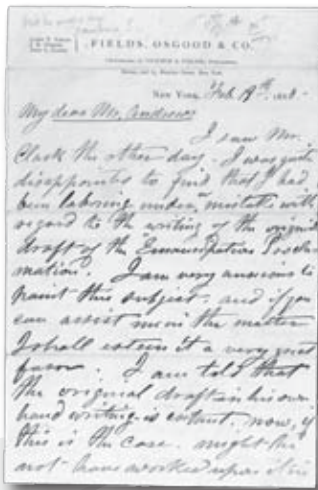 FIELDS, OSGOOD & CO.
New York, Feb 19th
My dear Mr. Andrews
I saw Mr.
Clark the other day. I was quite
disappointed to find that I had
been laboring under a mistake with
regard to the writing of the original
draft of the Emancipation Procla-
mation. I am very anxious to
paint this subject, and if you
can assist me in the matter
I shall esteem it a very great
favor. I am told that
the original draft in his own
hand writing is extant. now, if
this is the case. might he
not have worked upon it in